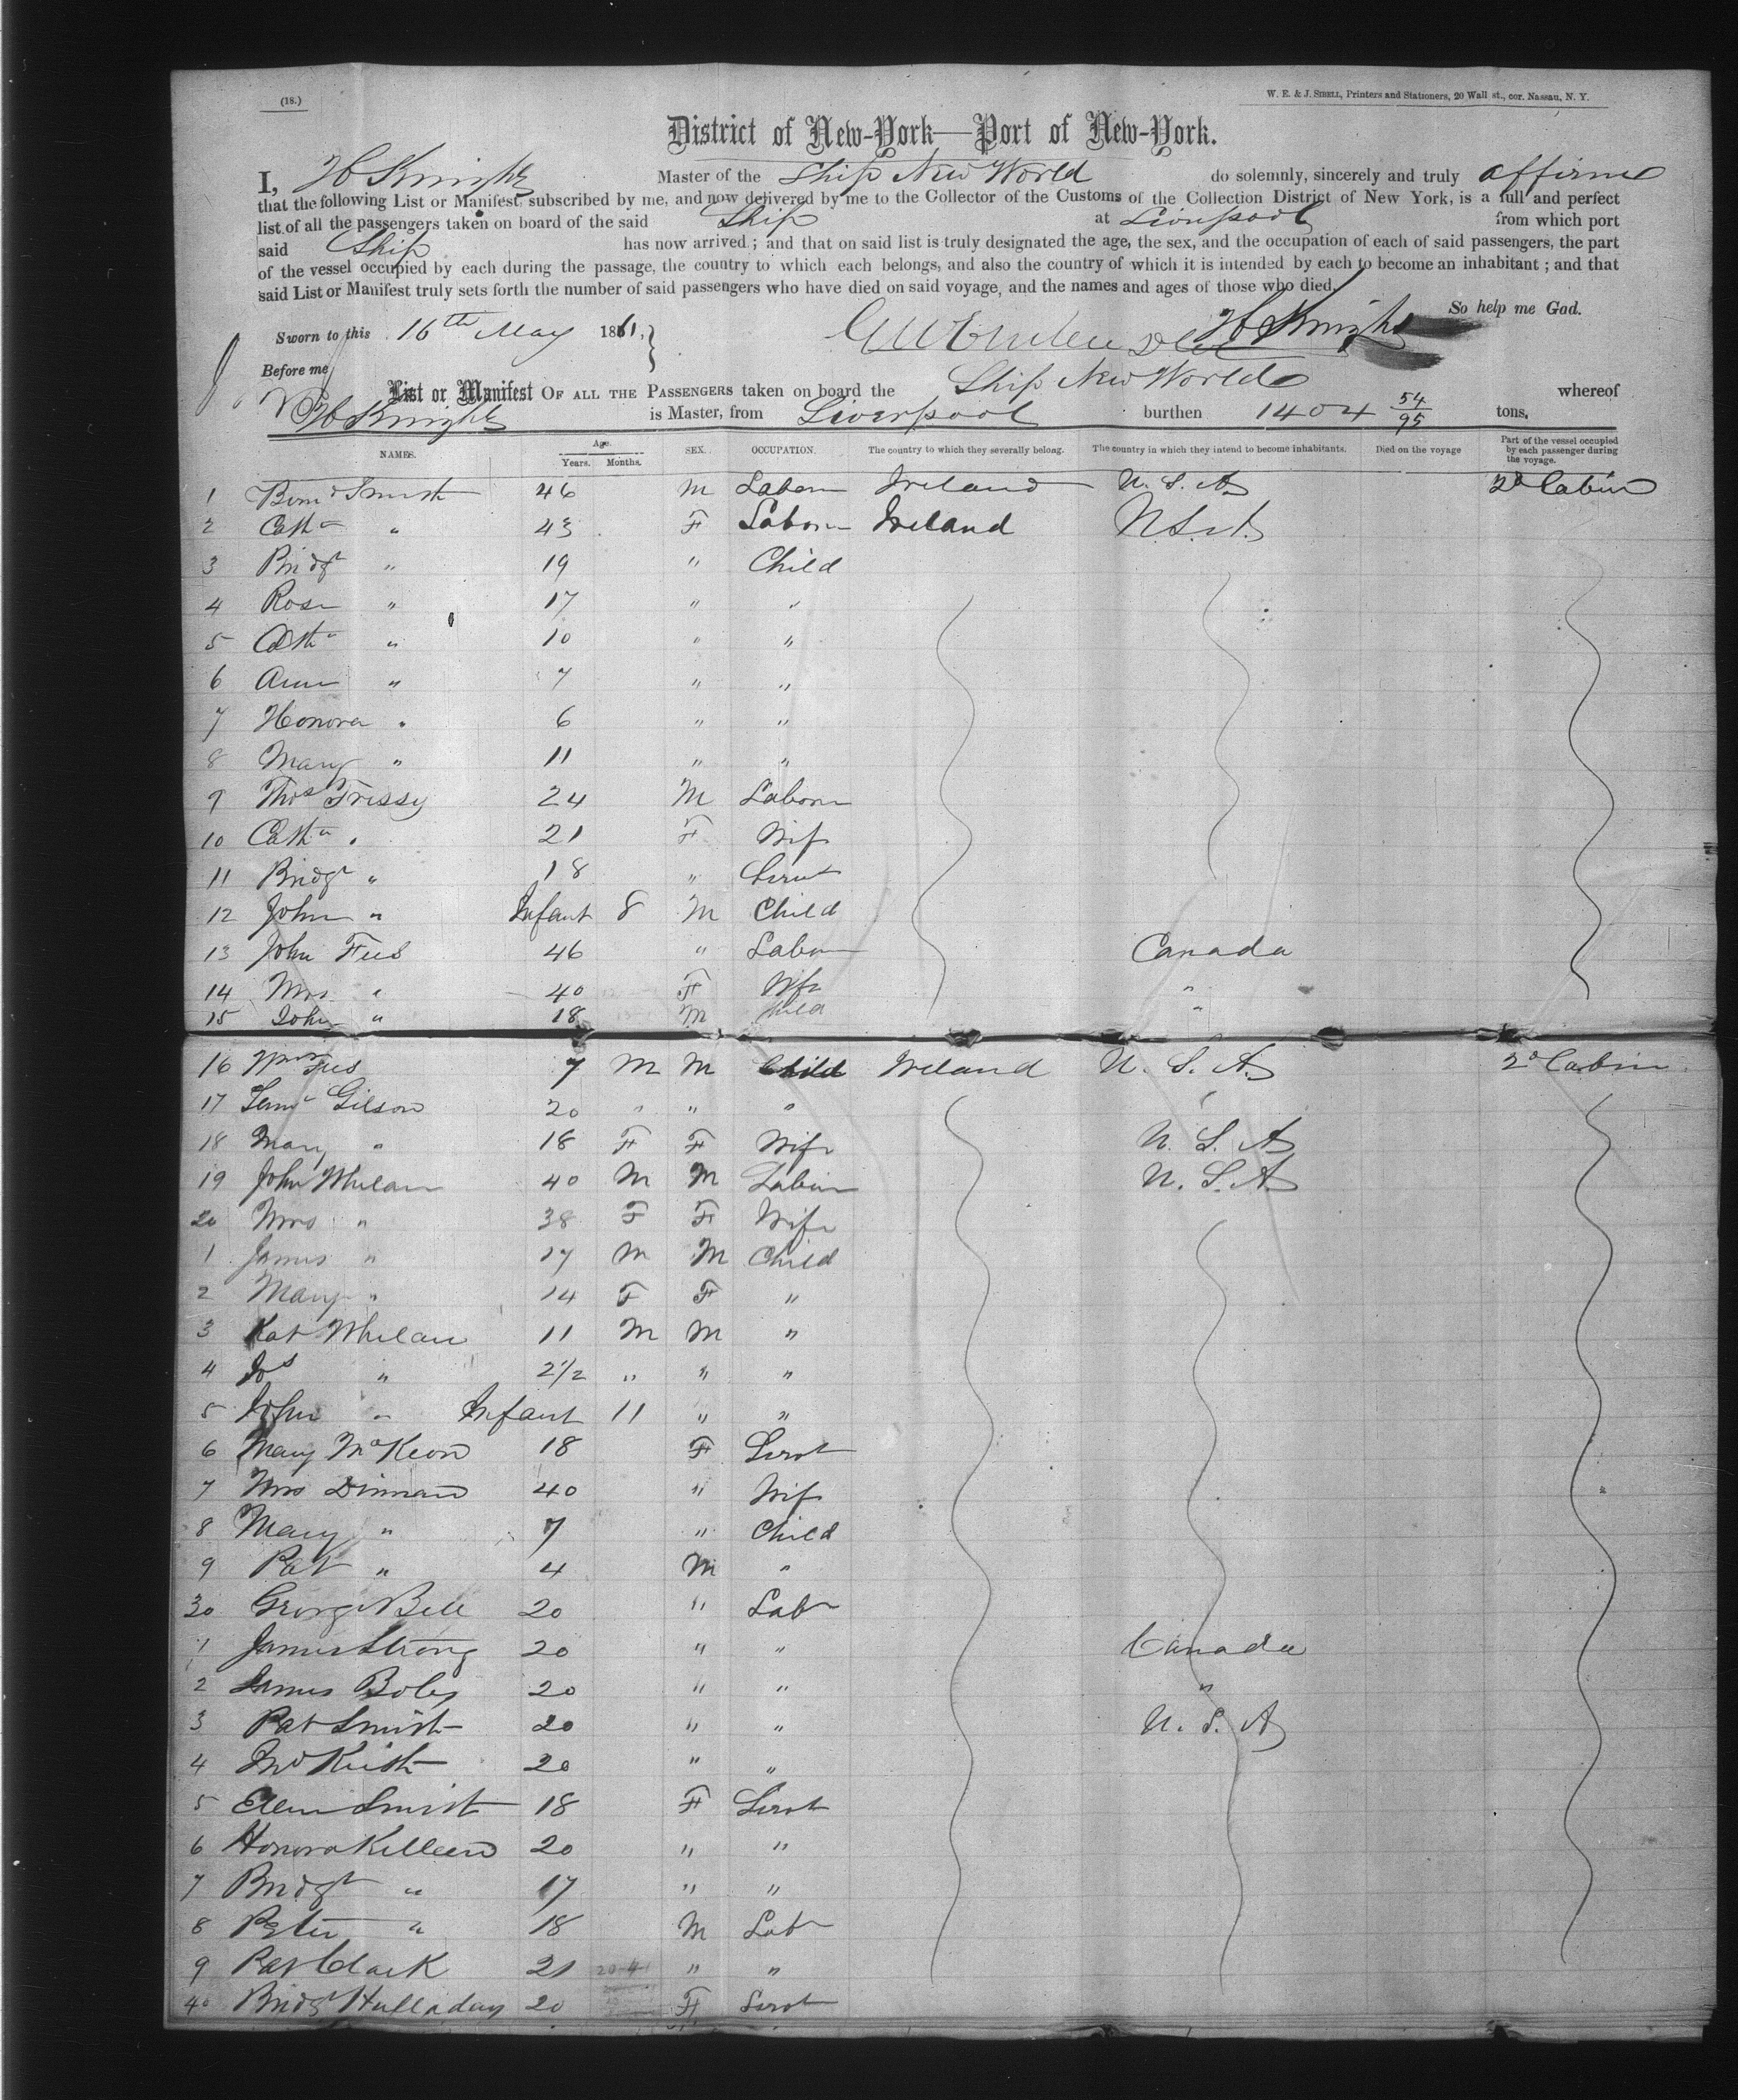 (18.)
W. E. & J. SIBELL, Printers and Stationers, 20 Wall st., cor. Nassau, N. Y.
District of New-York—Port of New-York.
I, H Knight Master of the Ship New World do solemnly, sincerely and truly affirm
that the following List or Manifest, subscribed by me, and now delivered by me to the Collector of the Customs of the Collection District of New York, is a full and perfect
list of all the passengers taken on board of the said Ship at Liverpool from which port
said Ship has now arrived; and that on said list is truly designated the age, the sex, and the occupation of each of said passengers, the part
of the vessel occupied by each during the passage, the country to which each belongs, and also the country of which it is intended by each to become an inhabitant; and that
said List or Manifest truly sets forth the number of said passengers who have died on said voyage, and the names and ages of those who died.
So help me God.
Sworn to this 16th May 1861, } H Knight
Before me
List or Manifest OF ALL THE PASSENGERS taken on board the Ship New World whereof
H Knight is Master, from Liverpool burthen 1404 54/95 tons,
NAMES. Age. Years. Months. SEX. OCCUPATION. The country to which they severally belong. The country in which they intend to become inhabitants. Died on the voyage Part of the vessel occupied by each passenger during the voyage.
1 Smith 46 M Labor Ireland U. S. A. 2d Cabin
2 Cath " 43 F Labor Ireland U.S.A.
3 Bridgt " 19 " Child
4 Rose " 17 " "
5 Cath " 10 " "
6 Ann " 7 " "
7 Honora " 6 " "
8 Mary " 11 " "
9 Thos Trissy 24 M Labor
10 Cath " 21 F Wife
11 Bridgt " 18 " Servt
12 John " Infant 8 M Child
13 John Fees 46 " Labor Canada
14 Mrs " 40 F Wife "
15 John " 18 M Child "
16 Wm Fees 7 M M Child Ireland U. S. A. 2d Cabin
17 Saml Gilson 20 " " "
18 Mary " 18 F F Wife U. S. A
19 John Whelan 40 M M Labor U. S. A.
20 Mrs " 38 F F Wife
1 James " 17 M M Child
2 Mary " 14 F F "
3 Pat Whelan 11 M M "
4 Jos " 2 1/2 " " "
5 John " Infant 11 " "
6 Mary McKeon 18 F Servt
7 Mrs Dinnan 40 " Wife "
8 Mary " 7 " Child
9 Pat " 4 M "
30 George Bell 20 " Labr
1 James Strong 20 " " Canada
2 James Boles 20 " " "
3 Pat Smith 20 " " U. S. A
4 Keith 20 " "
5 Ellen Smith 18 F Servt
6 Honora Killeen 20 " "
7 Bridgt " 17 " "
8 Peter " 18 M Labr
9 Pat Clark 21 " "
40 Bridgt Halladay 20 F Servt